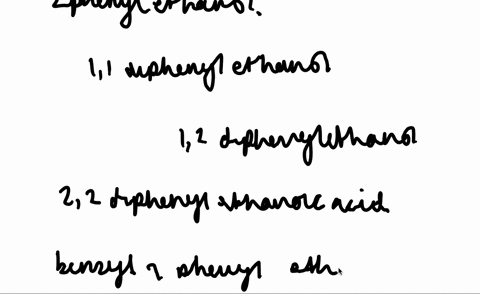 2phenyl ethanol.
1,1 diphenyl ethanol
1,2 diphenylethanol
2,2 diphenyl ethanoic acid
benzyl 2 phenyl eth